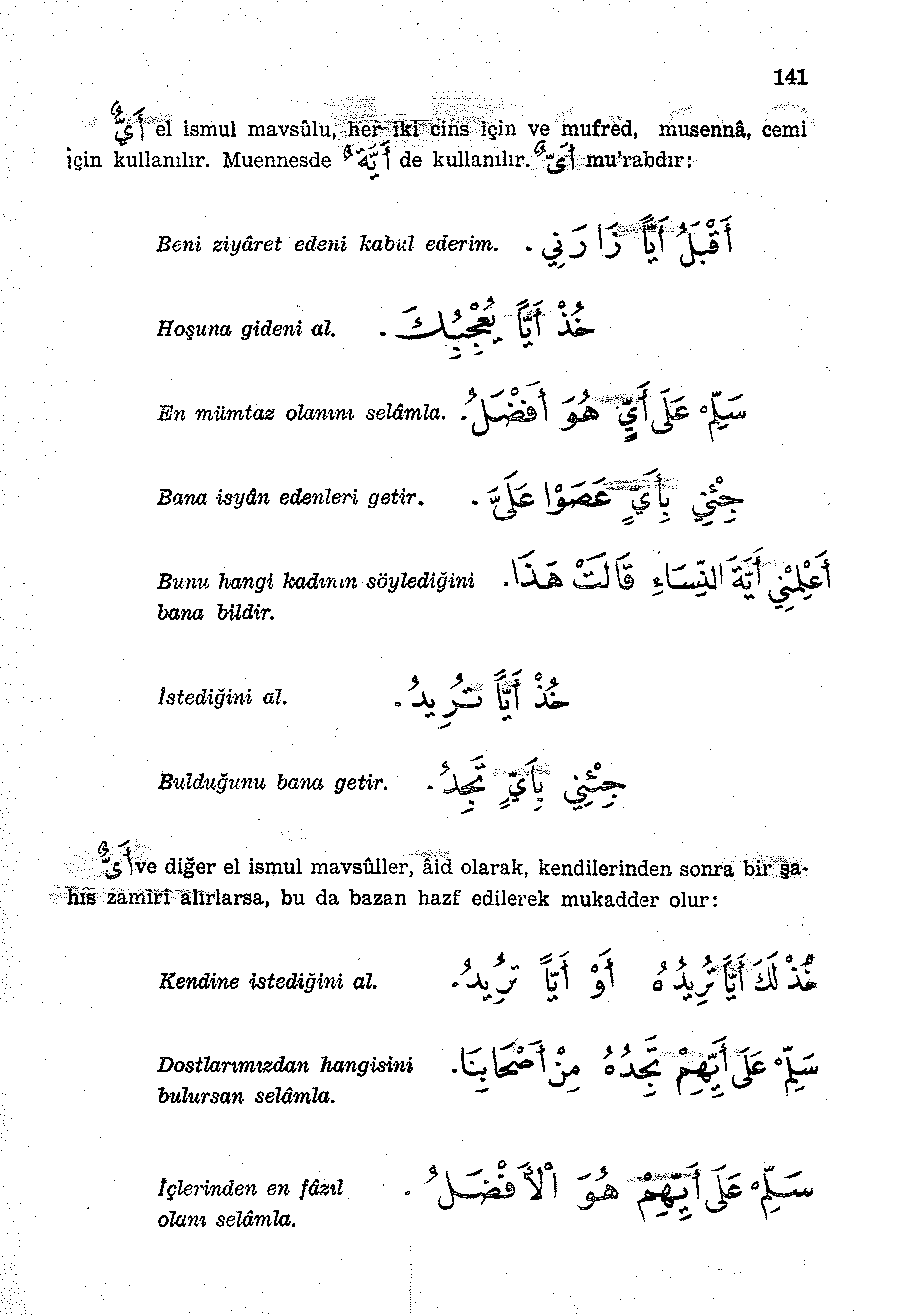 141
أَيٌّ el ismul mavsûlu, her iki cins için ve mufred, musennâ, cemi
için kullanılır. Muennesde أَيَّةٌ de kullanılır. أَيٌّ mu'rabdır:
Beni ziyâret edeni kabul ederim. أَقْبَلُ أَيًّا زَارَنِي .
Hoşuna gideni al. خُذْ أَيًّا يُعْجِبُكَ .
En mümtaz olanını selâmla. سَلِّمْ عَلَى أَيٍّ هُوَ أَفْضَلُ .
Bana isyân edenleri getir. جِئْنِي بِأَيٍّ عَصَوْا عَلَيَّ .
Bunu hangi kadının söylediğini أَعْلِمْنِي أَيَّةَ النِّسَاءِ قَالَتْ هَذَا .
bana bildir.
İstediğini al. خُذْ أَيًّا تُرِيدُ .
Bulduğunu bana getir. جِئْنِي بِأَيٍّ تَجِدُ .
أَيٌّ ve diğer el ismul mavsûller, âid olarak, kendilerinden sonra bir şa-
hıs zamiri alırlarsa, bu da bazan hazf edilerek mukadder olur:
Kendine istediğini al. خُذْ لَكَ أَيًّا تُرِيدُهُ أَوْ أَيًّا تُرِيدُ .
Dostlarımızdan hangisini سَلِّمْ عَلَى أَيِّهِمْ تَجِدُهُ مِنْ أَصْحَابِنَا .
bulursan selâmla.
İçlerinden en fâzıl سَلِّمْ عَلَى أَيِّهِمْ هُوَ الْأَفْضَلُ .
olanı selâmla.